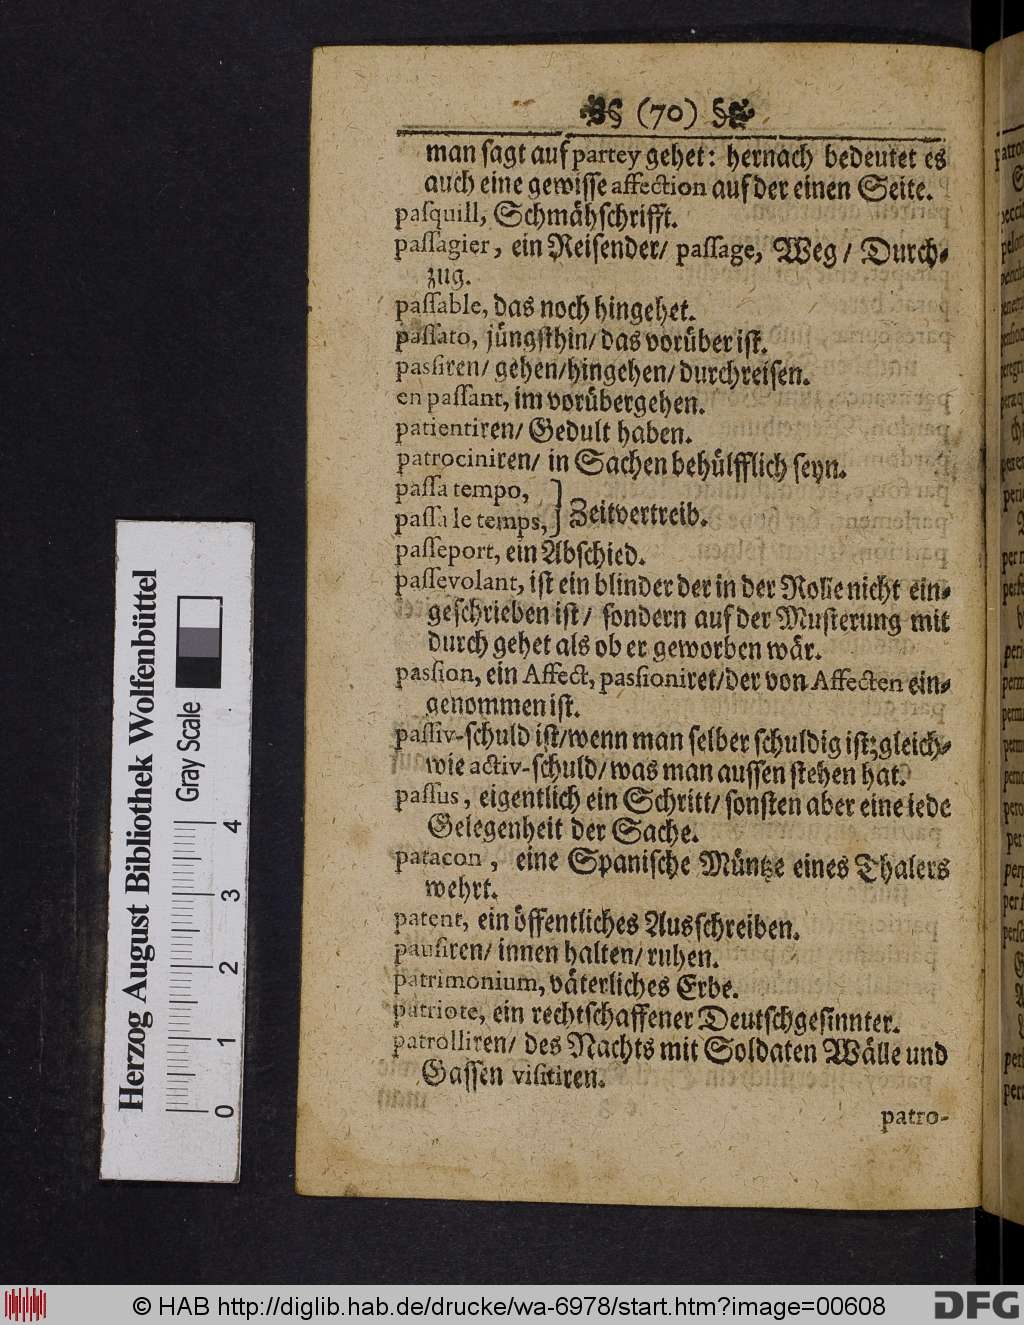 (70)
man sagt auf partey gehet: hernach bedeutet es
auch eine gewisse affection auf der einen Seite.
pasquill, Schmähschrifft.
passagier, ein Reisender/ passage, Weg / Durch-
zug.
passable, das noch hingehet.
passato, jüngsthin/ das vorüber ist.
passiren/ gehen/hingehen/durchreisen.
en passant, im vorübergehen.
patientiren/ Gedult haben.
patrociniren/ in Sachen behülfflich seyn.
passa tempo,
passa le temps, } Zeitvertreib.
passeport, ein Abschied.
passevolant, ist ein blinder der in der Rolle nicht ein-
geschrieben ist/ sondern auf der Musterung mit
durch gehet als ob er geworben wär.
passion, ein Affect, passioniret/der von Affecten ein-
genommen ist.
passiv-schuld ist/wenn man selber schuldig ist;gleich-
wie activ-schuld/was man aussen stehen hat.
passus, eigentlich ein Schritt/ sonsten aber eine jede
Gelegenheit der Sache.
patacon, eine Spanische Müntze eines Thalers
wehrt.
patent, ein öffentliches Ausschreiben.
pausiren/ innen halten/ruhen.
patrimonium, väterliches Erbe.
patriote, ein rechtschaffener Deutschgesinnter.
patrolliren/ des Nachts mit Soldaten Wälle und
Gassen visitiren.
patro-
Herzog August Bibliothek Wolfenbüttel
Gray Scale
0 1 2 3 4
© HAB http://diglib.hab.de/drucke/wa-6978/start.htm?image=00608
DFG